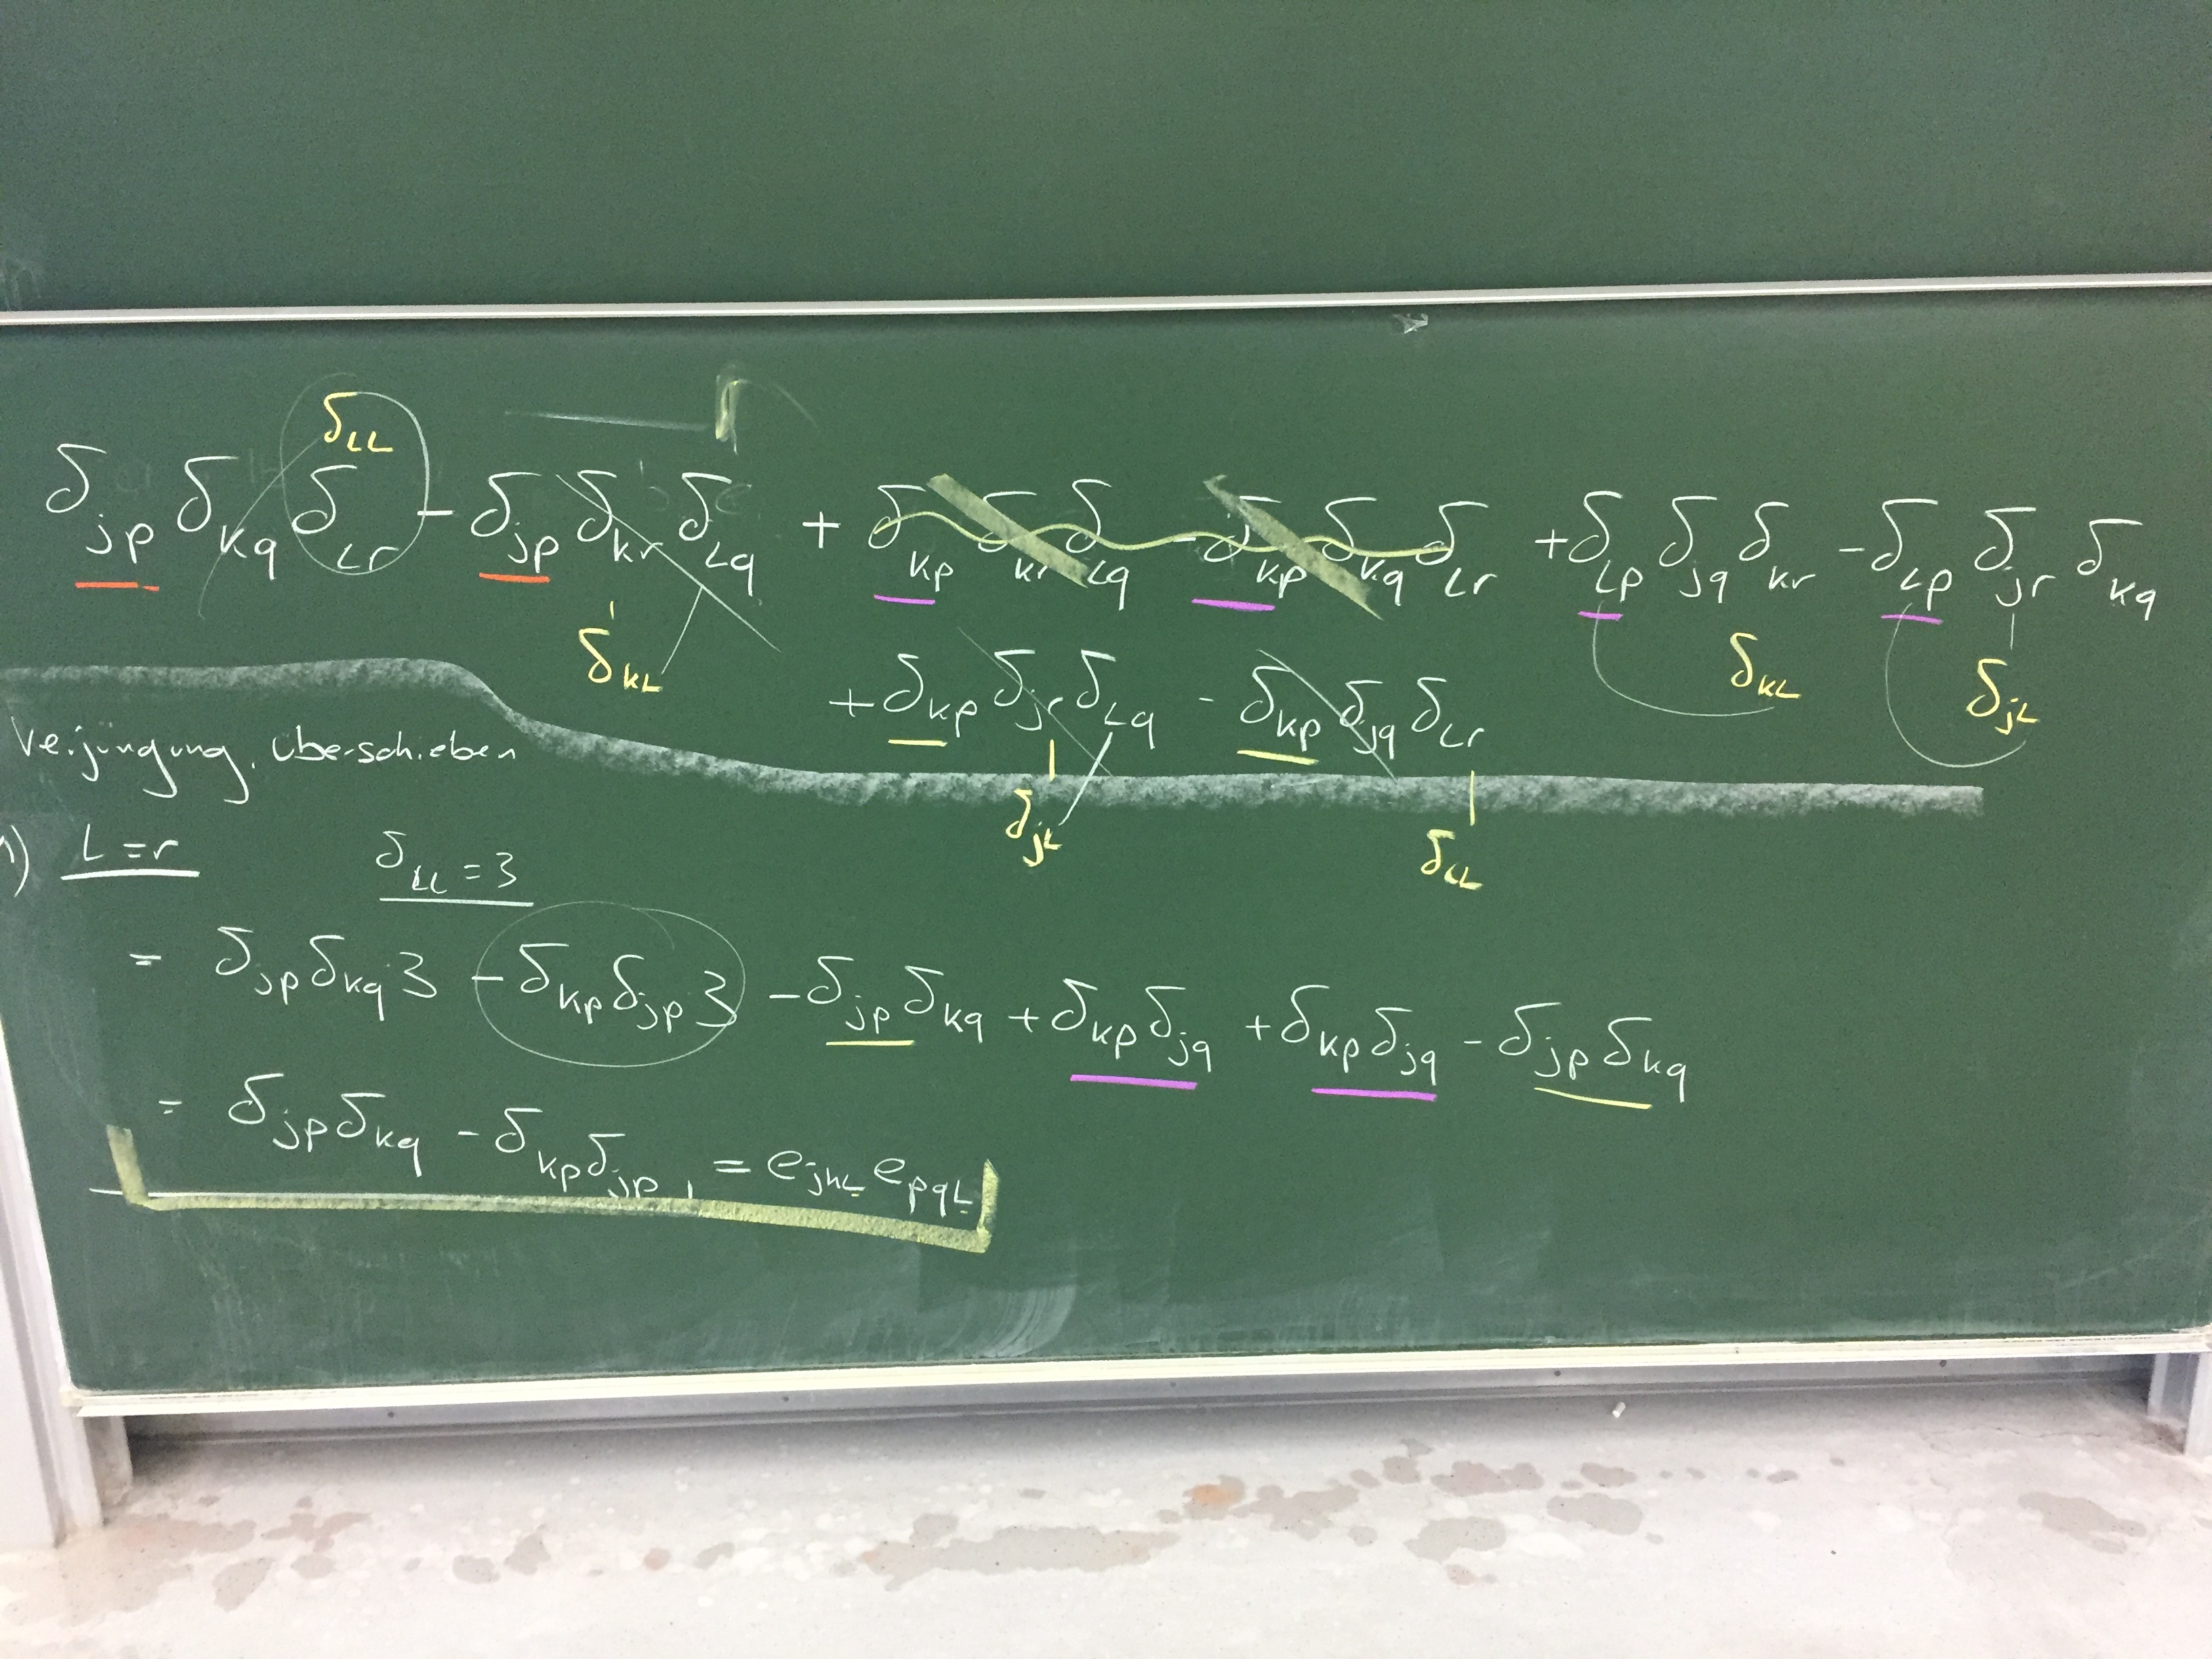 δ_LL
δ_jp δ_kq δ_Lr - δ_jp δ_kr δ_Lq + δ_kp δ_kr δ_Lq - δ_kp δ_kq δ_Lr + δ_Lp δ_jq δ_kr - δ_Lp δ_jr δ_kq
δ_kL δ_kL δ_jL
+ δ_kp δ_jr δ_Lq - δ_kp δ_jq δ_Lr
Verjüngung, überschieben
δ_jL δ_LL
L = r δ_LL = 3
= δ_jp δ_kq 3 - δ_kp δ_jp 3 - δ_jp δ_kq + δ_kp δ_jq + δ_kp δ_jq - δ_jp δ_kq
= δ_jp δ_kq - δ_kp δ_jp = e_jkL e_pqL